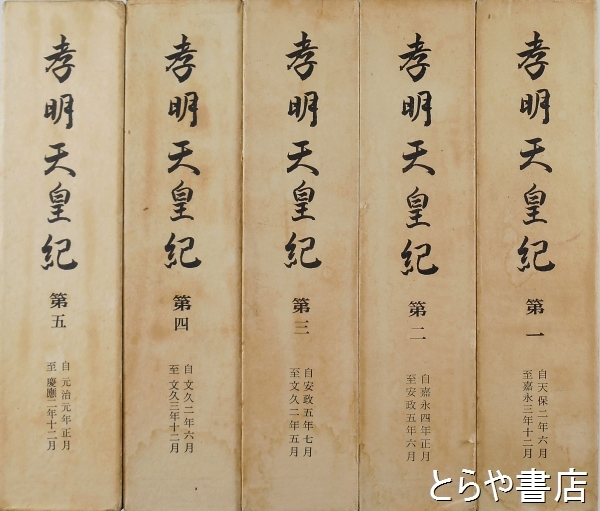 孝明天皇紀 第一
自天保二年六月
至嘉永三年十二月
孝明天皇紀 第二
自嘉永四年正月
至安政五年六月
孝明天皇紀 第三
自安政五年七月
至文久二年五月
孝明天皇紀 第四
自文久二年六月
至文久三年十二月
孝明天皇紀 第五
自元治元年正月
至慶應二年十二月
とらや書店